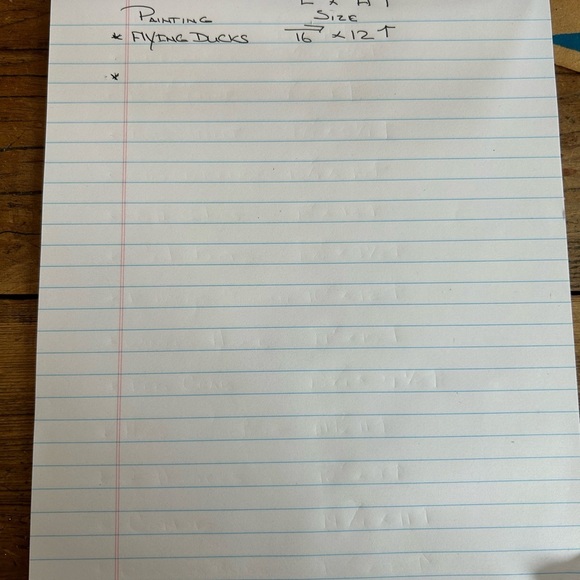 L x HT
PAINTING SIZE
* FLYING DUCKS 16 → x 12 ↑
*